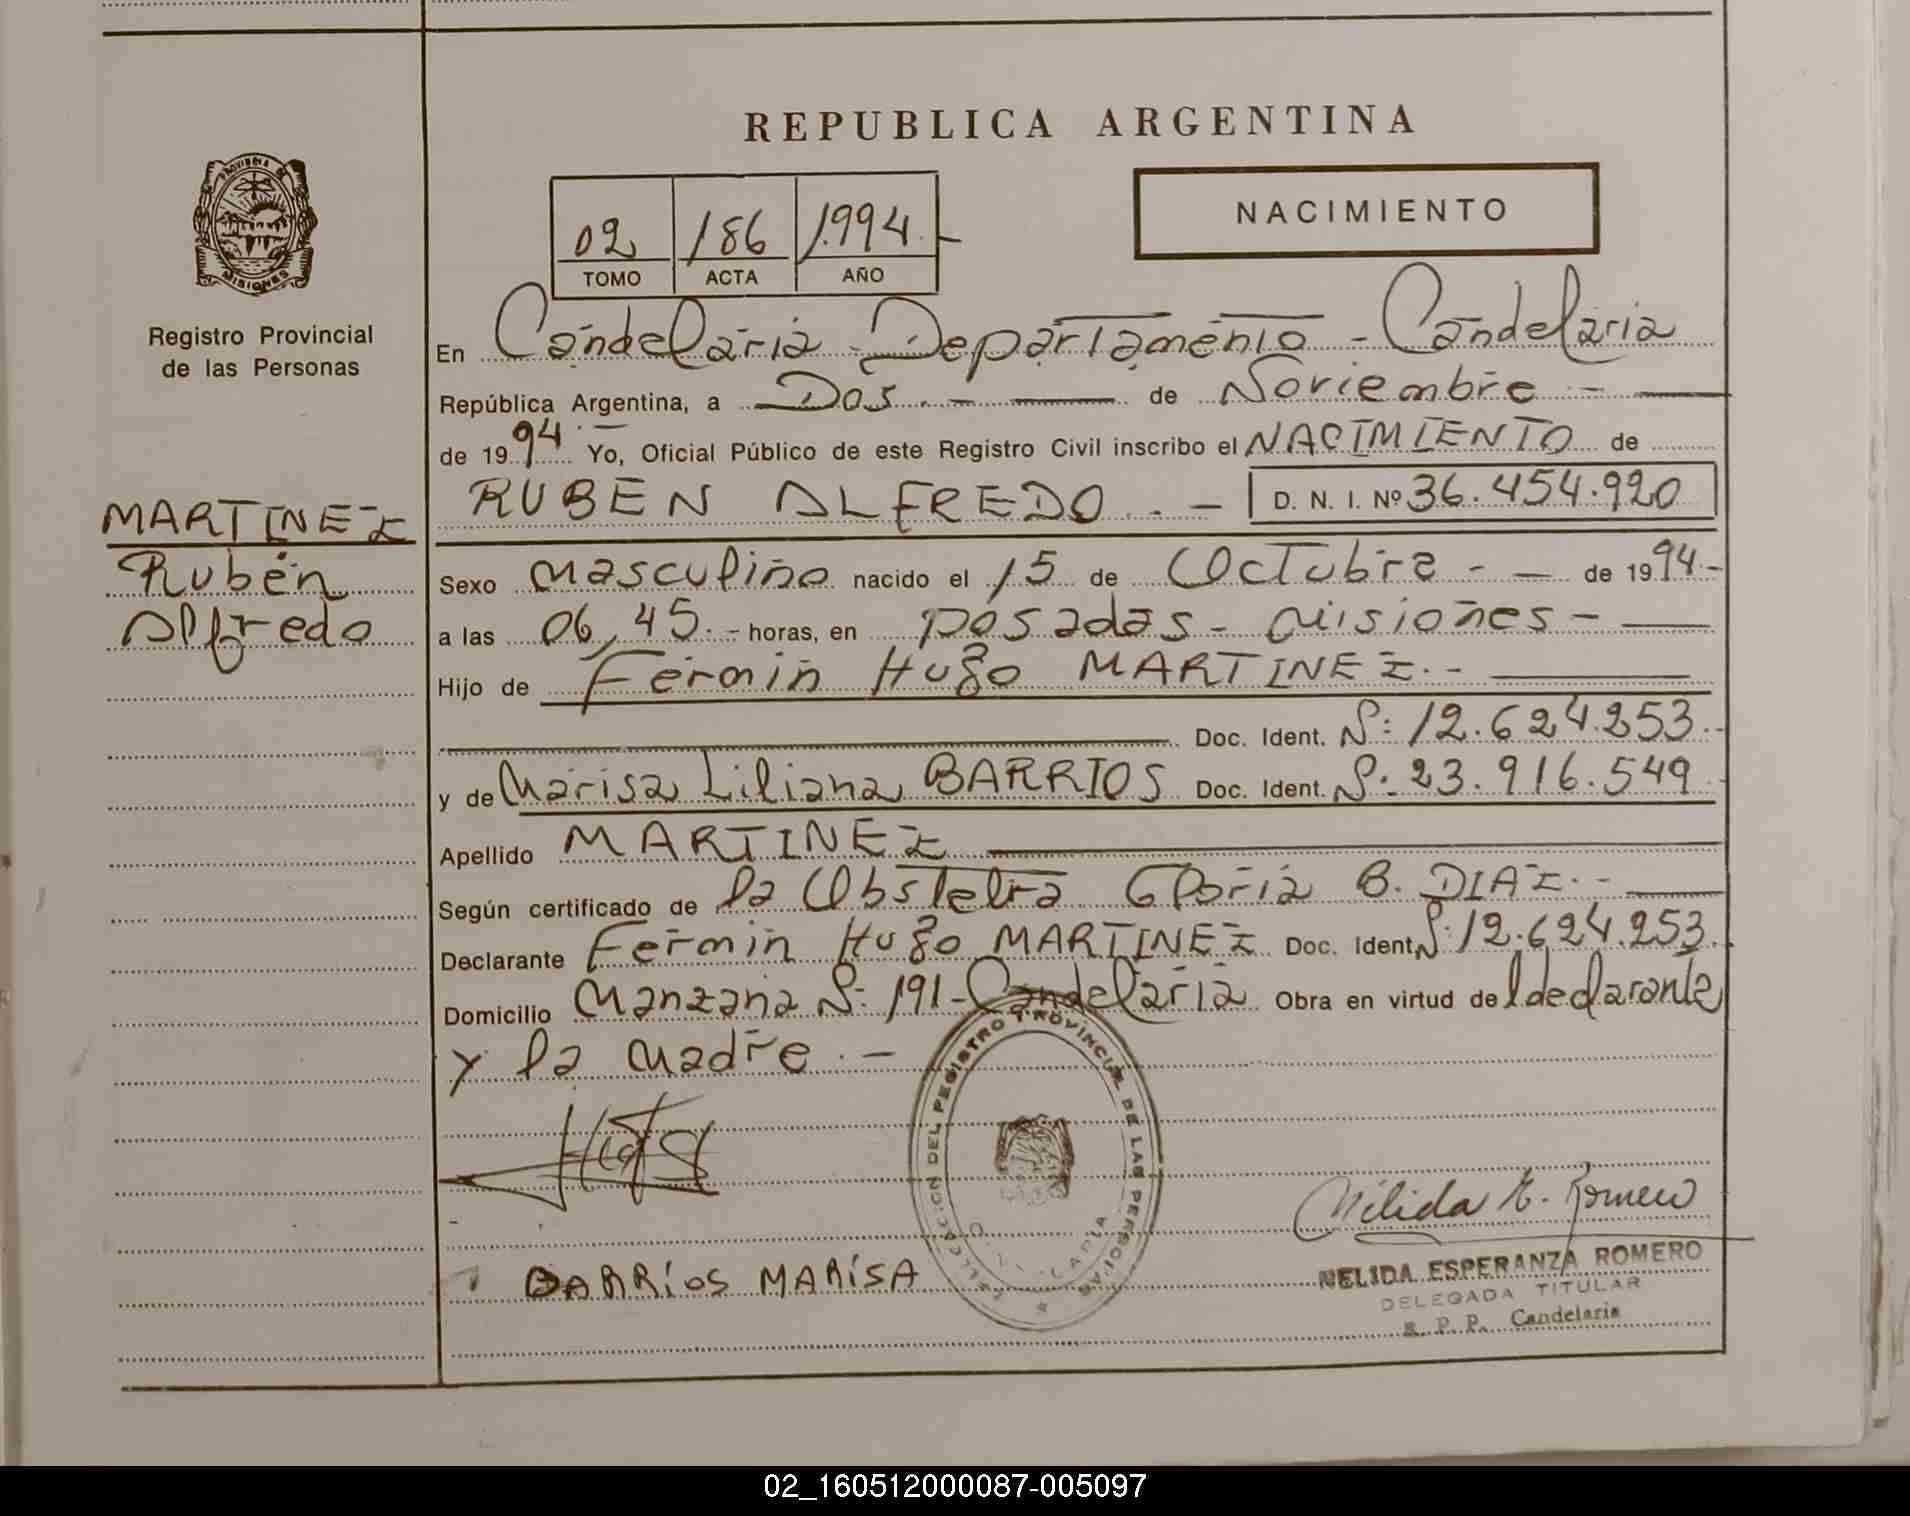 REPUBLICA ARGENTINA
PROVINCIA DE
MISIONES
Registro Provincial
de las Personas
02 186 1.994.-
TOMO ACTA AÑO
NACIMIENTO
En Candelaria - Departamento - Candelaria
República Argentina, a Dos.- — de Noviembre.- —
de 1994.- Yo, Oficial Público de este Registro Civil inscribo el NACIMIENTO de
RUBEN ALFREDO.- D. N. I. Nº 36.454.920
MARTINEZ
Rubén
Alfredo
Sexo masculino nacido el 15 de Octubre - — de 1994.-
a las 06,45.- horas, en posadas - misiones - —
Hijo de Fermin Hugo MARTINEZ.- —
Doc. Ident. N: 12.624.253.-
y de Marisa Liliana BARRIOS Doc. Ident. N: 23.916.549
Apellido MARTINEZ —
Según certificado de la Obstetra Gloria B. DIAZ.- —
Declarante Fermin Hugo MARTINEZ Doc. Ident. N: 12.624.253.
Domicilio Manzana N: 191 - Candelaria Obra en virtud del declarante
y la madre.-
DELEGACION DEL REGISTRO PROVINCIAL DE LAS PERSONAS
Nélida E. Romero
BARRiOS MARiSA
NELIDA ESPERANZA ROMERO
DELEGADA TITULAR
R. P. P. Candelaria
02_160512000087-005097